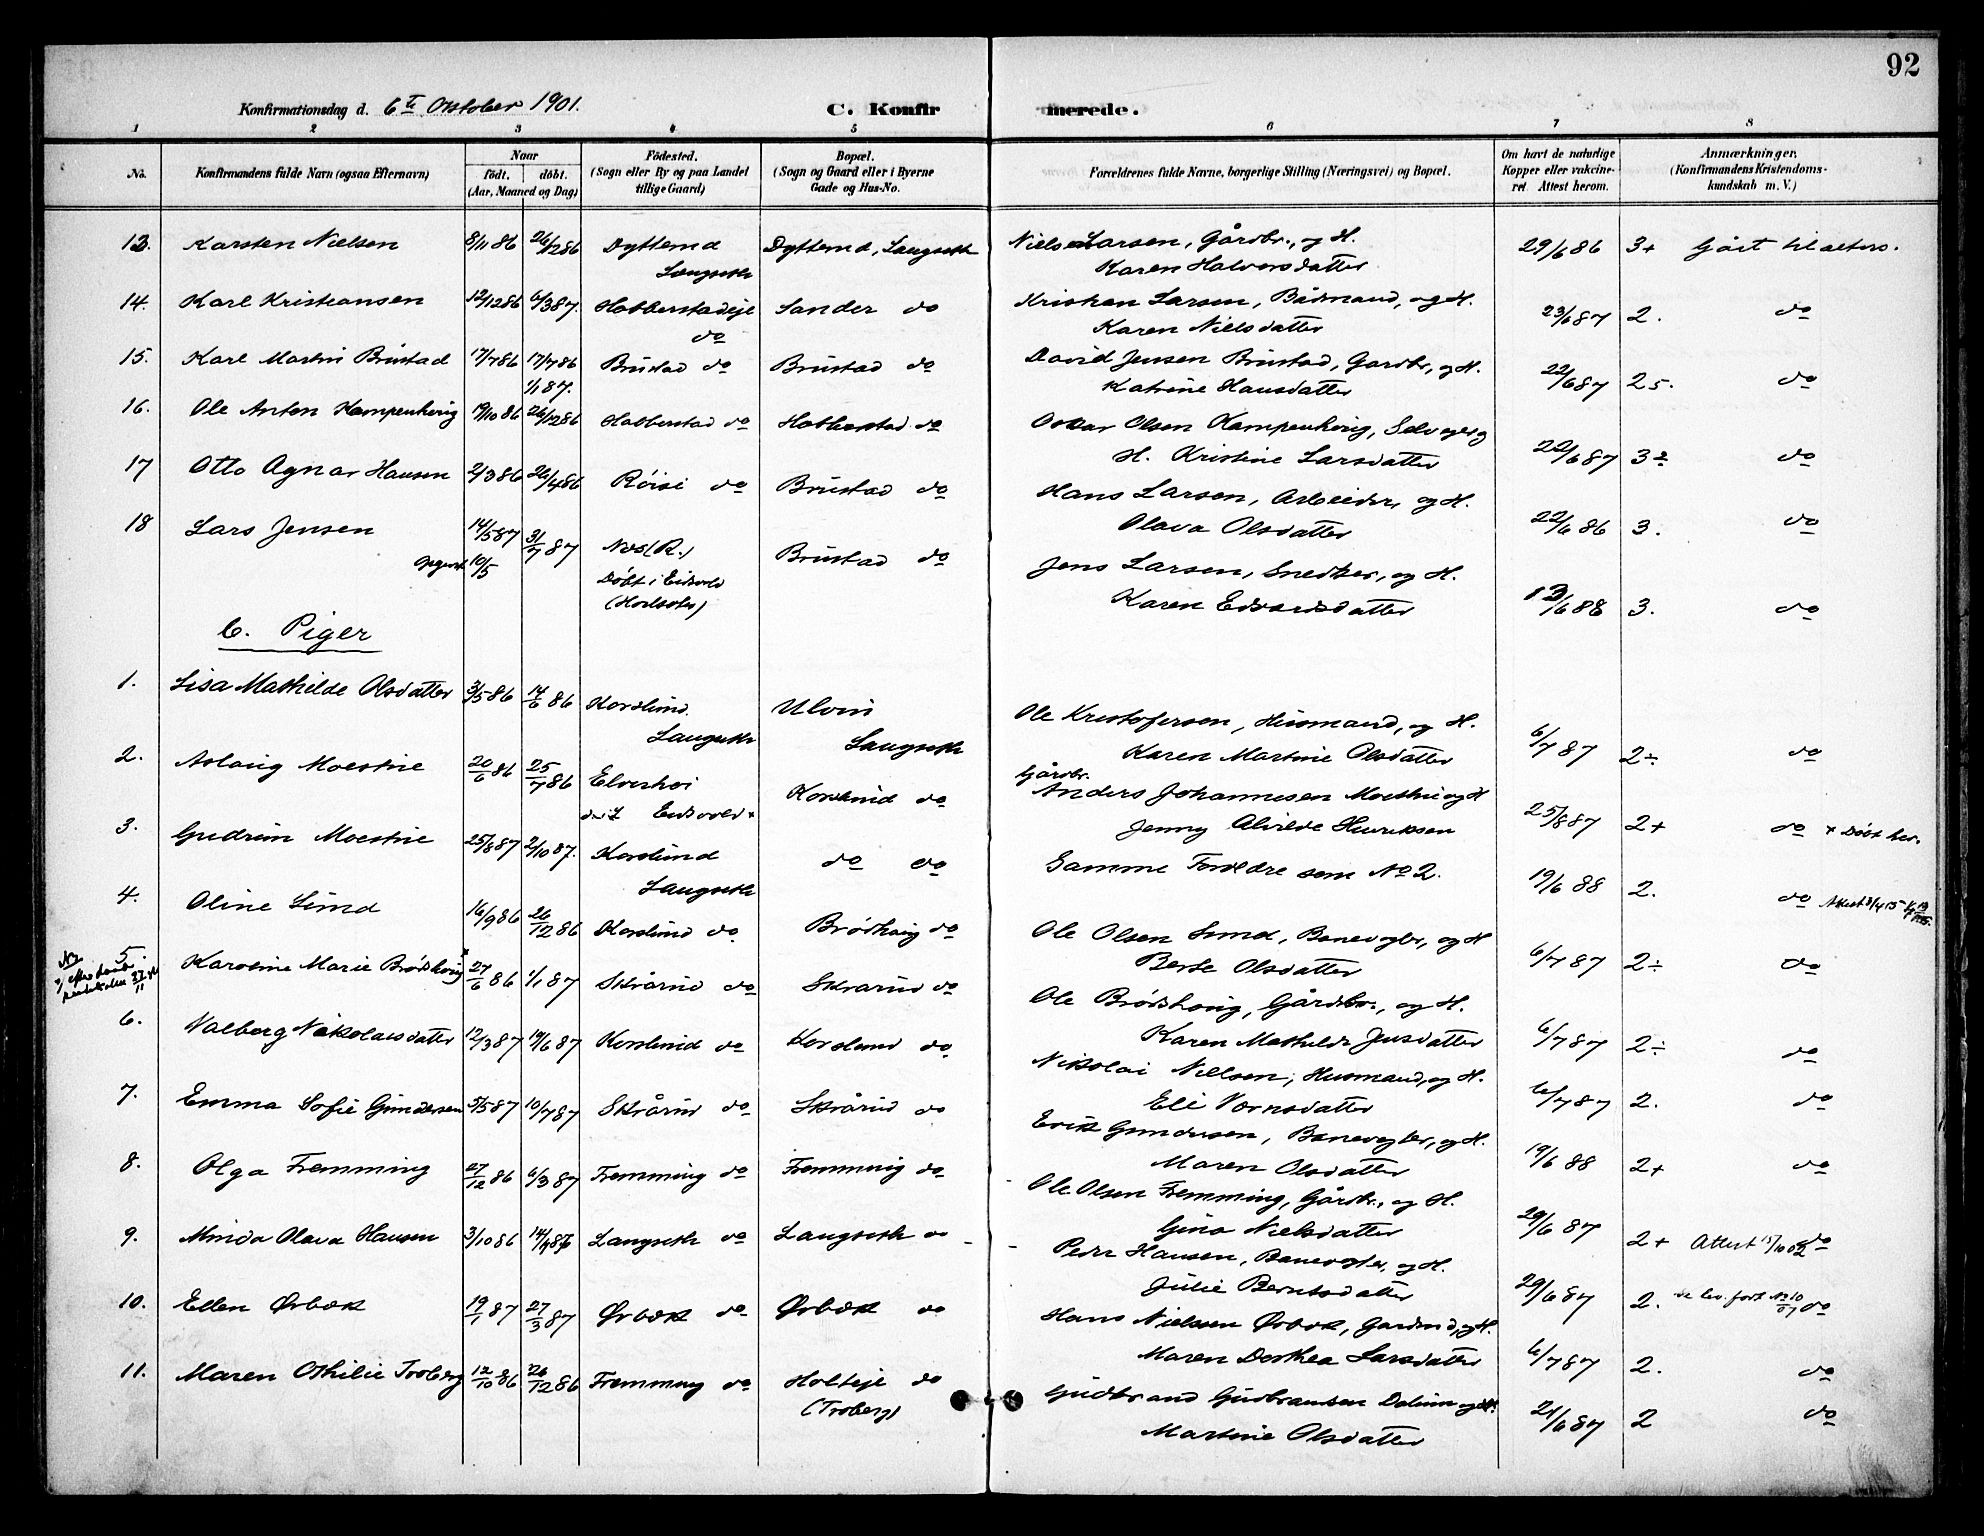 92
Konfirmationsdag d. 6te Oktober 1901. C. Konfirmerede.
1 2 3 4 5 6 7 8
No. Konfirmandens fulde Navn (ogsaa Efternavn) Naar født. døbt. (Aar, Maaned og Dag) Fødested. (Sogn eller By og paa Landet tillige Gaard) Bopæl. (Sogn og Gaard eller i Byerne Gade og Hus-No. Forældrenes fulde Navne, borgerlige Stilling (Næringsvei) og Bopæl. Om havt de naturlige Kopper eller vakcineret. Attest herom. Anmærkninger. (Konfirmandens Kristendomskundskab m. V.)
13. Karsten Nielsen 8/11 86 26/12 86 Dyttemd Dyttemd, Langseth Niels Larsen, Gårdbr., og H. 29/6 86 3+ Gået til alters.
Langseth Karen Halvorsdatter
14. Karl Kristiansen 12/12 86 6/3 87. Habberstadeje Sander do Kristian Larsen, Bådmand, og H. 23/6 87 2. do
do Karen Nielsdatter
15. Karl Martin Brustad 17/7 86 17/7 86 Brustad do Brustad do David Jensen Brustad, Gardbr., og H. 22/6 87 2 5. do
1/1 87. Katrine Hansdatter
16. Ole Anton Kampenhaug 19/10 86 26/12 86 Habberstad do Habberstad do Oskar Olsen Kampenhaug, Selveier og
H. Kristine Larsdatter 22/6 87 3 do
17 Otto Agnar Hansen 2/3 86 26/4 86 Røise do Brustad do Hans Larsen, Arbeider, og H.
Olava Olsdatter 22/6 86 3. do
18 Lars Jensen 14/5 87 31/7 87 Nes (R.) Brustad do Jens Larsen, Snedker, og H.
opgivet 10/5 Døbt i Eidsvold
(Horlsoter) Karen Edvardsdatter 13/6 88 3. do
b. Piger
1. Lisa Mathilde Olsdatter 3/5 86 14/6 86 Korslund. Ulvin Ole Kristofersen, Husmand, og H.
Langseth Langseth Karen Martine Olsdatter 6/7 87 2÷ do
2. Aslaug Moestue 20/6 86 25/7 86 Elverhøi Korslund do Gårdbr. Anders Johannesen Moestue og H
Eidsvold + Jenny Alvilde Henriksen 25/8 87 2+ do + Døbt her.
3. Gudrun Moestue 25/8 87 2/10 87. Korslund do do Samme Forældre som No 2. 19/6 88 2. do Attest 3/4 15
Langseth
4. Oline Lund 16/9 86 26/12 86 Korslund do Brødhaug do Ole Olsen Lund, Banevogter, og H
Berte Olsdatter 6/7 87 2÷ do
5. Karoline Marie Brødshaug 27/6 86 1/1 87 Skårud do Skårud do Ole Brødshaug, Gårdbr., og H.
Karen Mathilde Jensdatter 6/7 87 2÷ do
6. Valborg Nikolaisdatter 12/3 87 19/6 87 Korslund do Korslund do Nikolai Nielsen, Husmand, og H.
Eli Vornsdatter 6/7 87 2. do
7. Emma Sofie Gundersen 5/5 87 10/7 87 Skårud do Skårud do Erik Gundersen, Banevogter, og H.
Maren Olsdatter 19/6 88 2+ do
8. Olga Fremming 27/12 86 6/3 87 Fremming do Fremming do Ole Olsen Fremming, Gårdbr., og H.
Gina Nielsdatter 29/6 87 2+ Attest 15/10 02 do
9. Minda Olava Hansen 3/10 86 14/4 87 Langseth do Langseth do Peder Hansen, Banevogter, og H.
Julie Berntsdatter 29/6 87 2. do
10. Ellen Ørbæk 19/1 87 27/3 87 Ørbæk do Ørbæk do Hans Nielsen Ørbæk, Gardmd, og H.
Maren Dorthea Larsdatter 6/7 87 2. do
11. Maren Othilie Troberg 12/10 86 26/12 86 Fremming do Holteje do Gudbrand Gudbransen Dalmm og H.
(Troberg) Martine Olsdatter 21/6 87 2 do